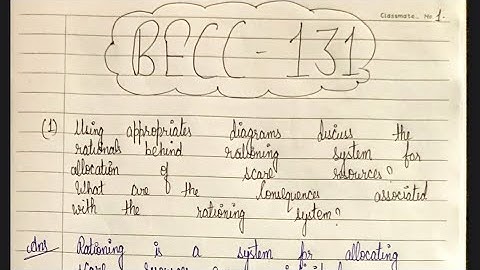 Classmate No. 1.
BECC-131
(1) Using appropriates diagrams discuss the
rationals behind rationing system for
allocation of scare resources?
What are the Consequences associated
with the rationing system?
Ans Rationing is a system for allocating